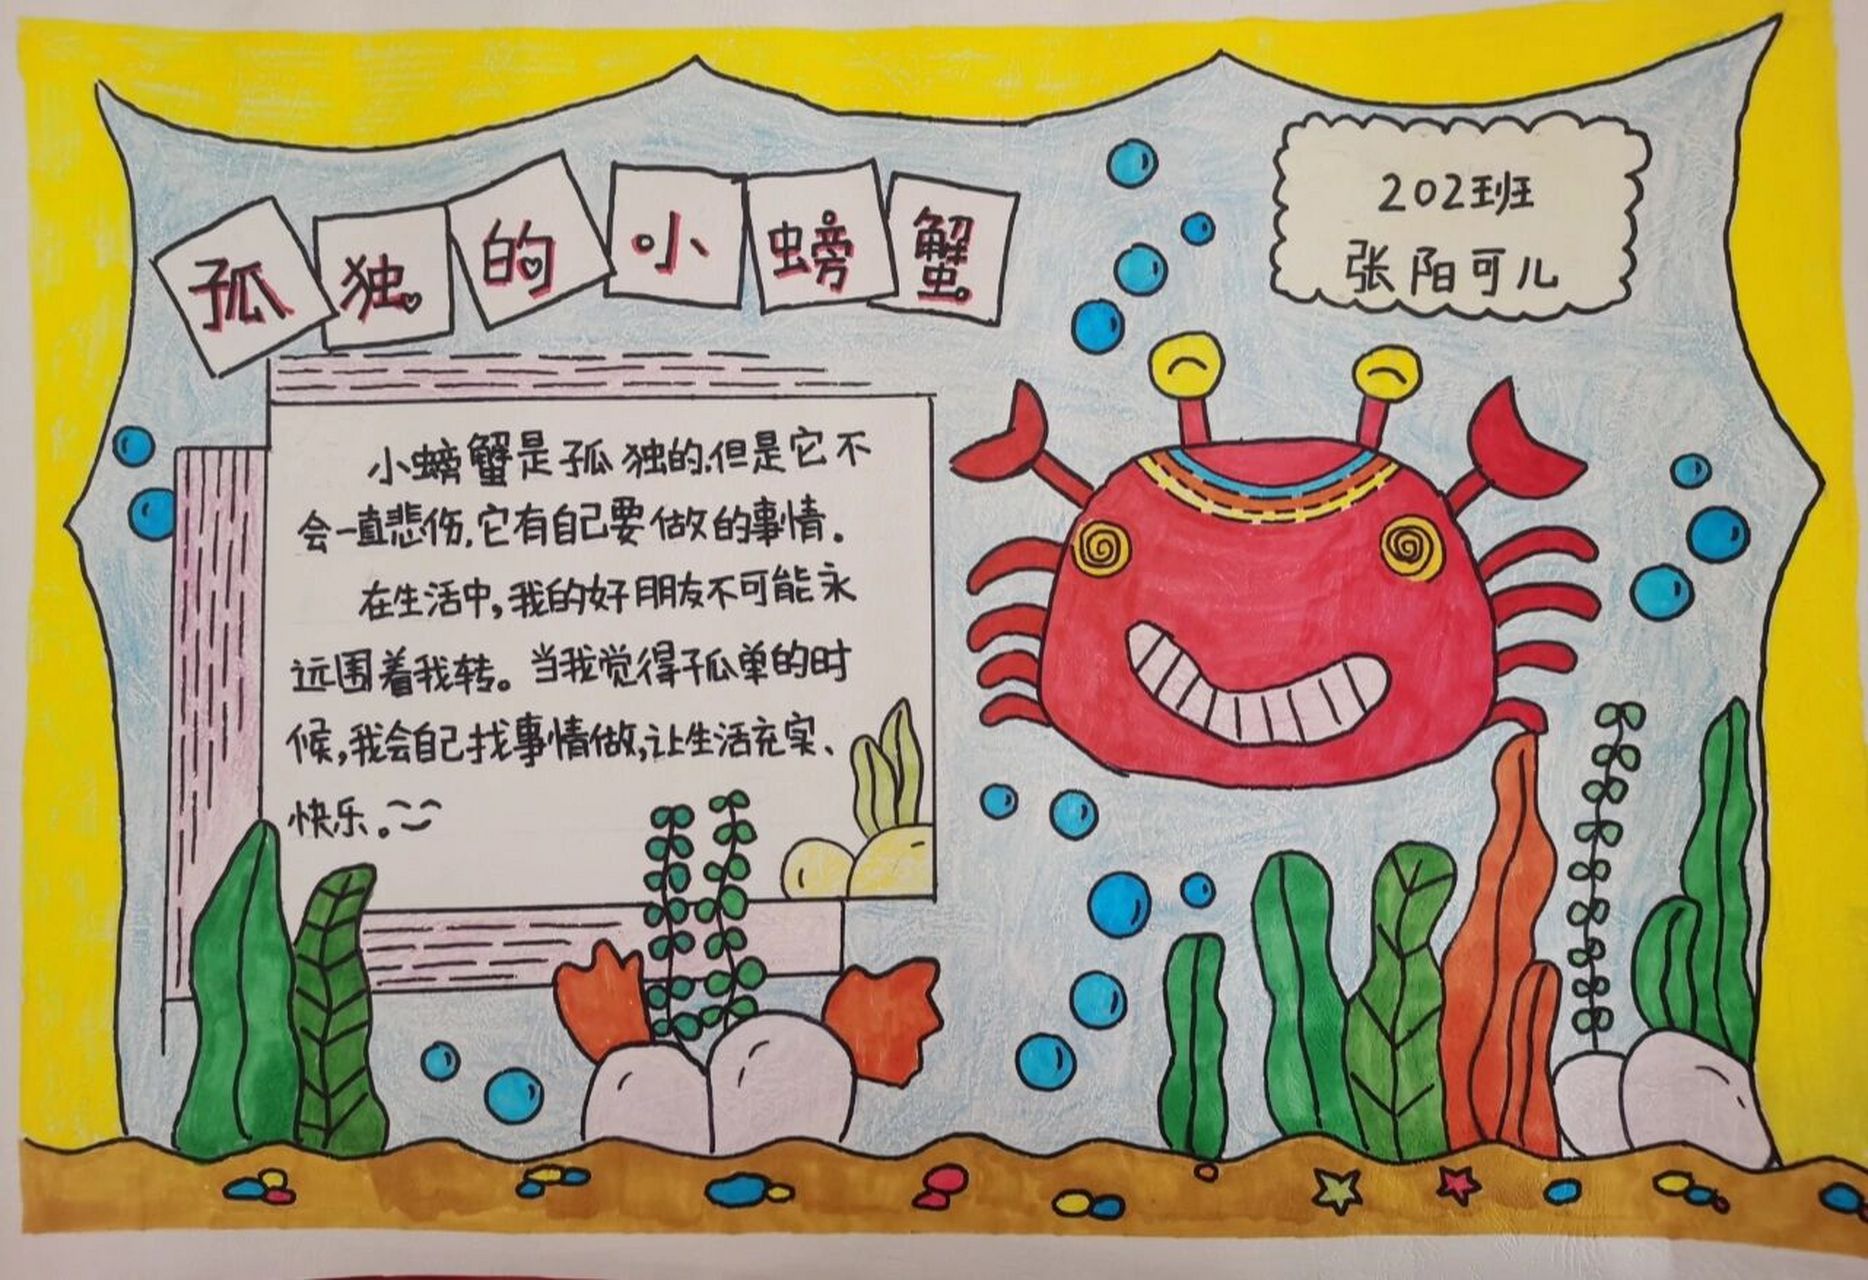 孤独的小螃蟹
202班
张阳可儿
小螃蟹是孤独的,但是它不
会一直悲伤,它有自己要做的事情.
在生活中,我的好朋友不可能永
远围着我转。当我觉得孤单的时
候,我会自己找事情做,让生活充实、
快乐。